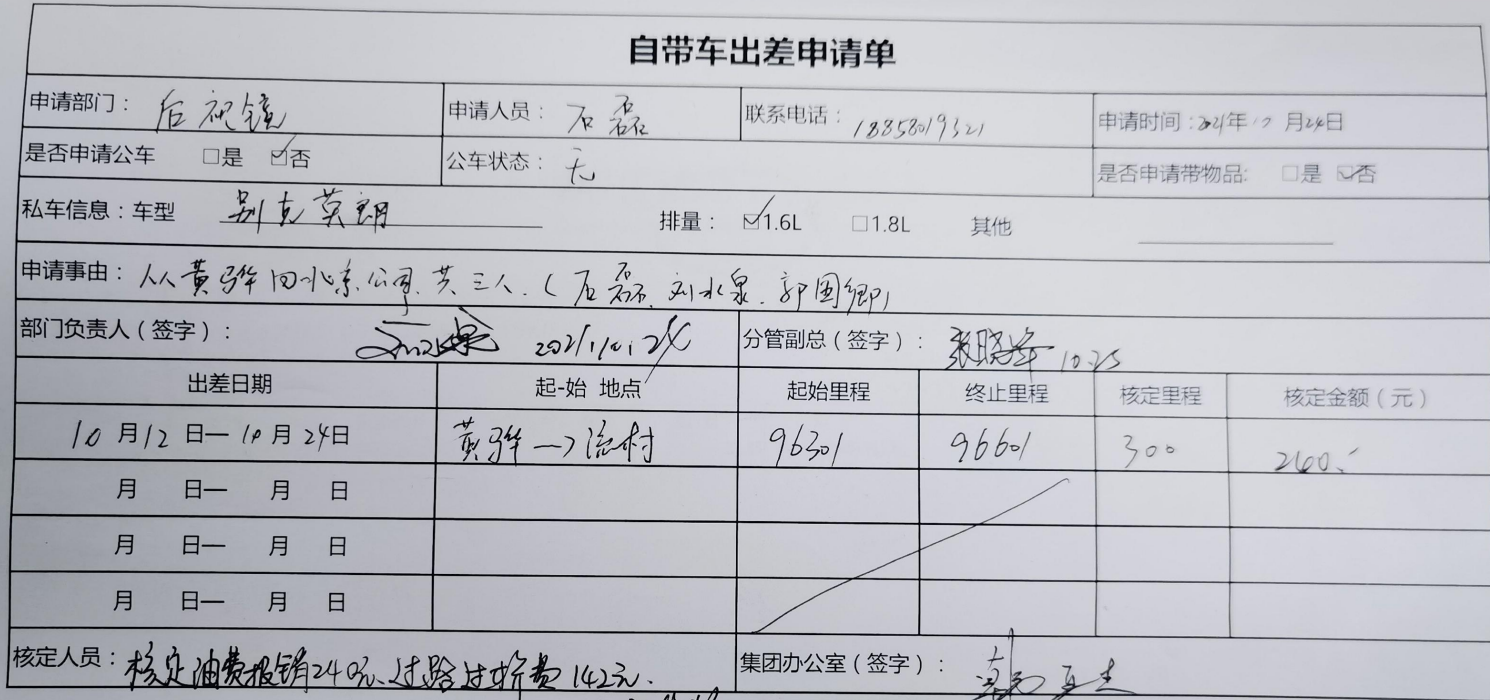 自带车出差申请单
申请部门： 后视镜 申请人员： 石磊 联系电话： 18358019321 申请时间：2021年10月24日
是否申请公车 □是 ☑否 公车状态： 无 是否申请带物品: □是 ☑否
私车信息：车型 别克英朗 排量： ☑1.6L □1.8L 其他
申请事由：从黄骅回北京公司.共三人.(石磊、刘水泉、郭国卿)
部门负责人（签字）： 2021.10.24 分管副总（签字）： 10.25
出差日期 起-始 地点 起始里程 终止里程 核定里程 核定金额（元）
10月12日—10月24日 黄骅→流村 96301 96601 300 240.
月 日— 月 日
月 日— 月 日
月 日— 月 日
核定人员：核定油费报销240元、过路过桥费142元. 集团办公室（签字）：